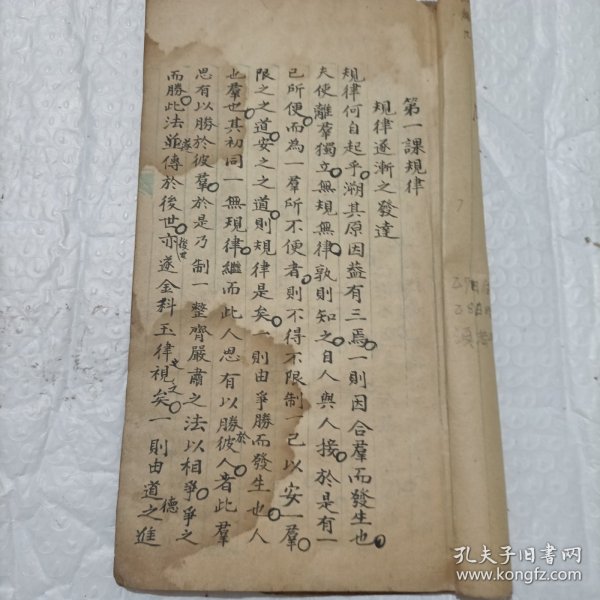 第一課規律
規律逐漸之發達
規律何自起乎溯其原因蓋有三焉一則因合羣而發生也
夫使離羣獨立無規無律孰則知之自人與人接於是有一
己所便而為一羣所不便者則不得不限制一己以安一羣
限之之道安之之道則規律是矣一則由爭勝而發生也人
也羣也其初同一無規律繼而此人思有以勝於彼人者此羣
思有以勝於彼羣於是乃制一整齊嚴肅之法以相爭爭之
而勝此法並傳於後世後世亦遂金科玉律視之矣一則由道德之進
孔夫子旧书网
www.kongfz.com